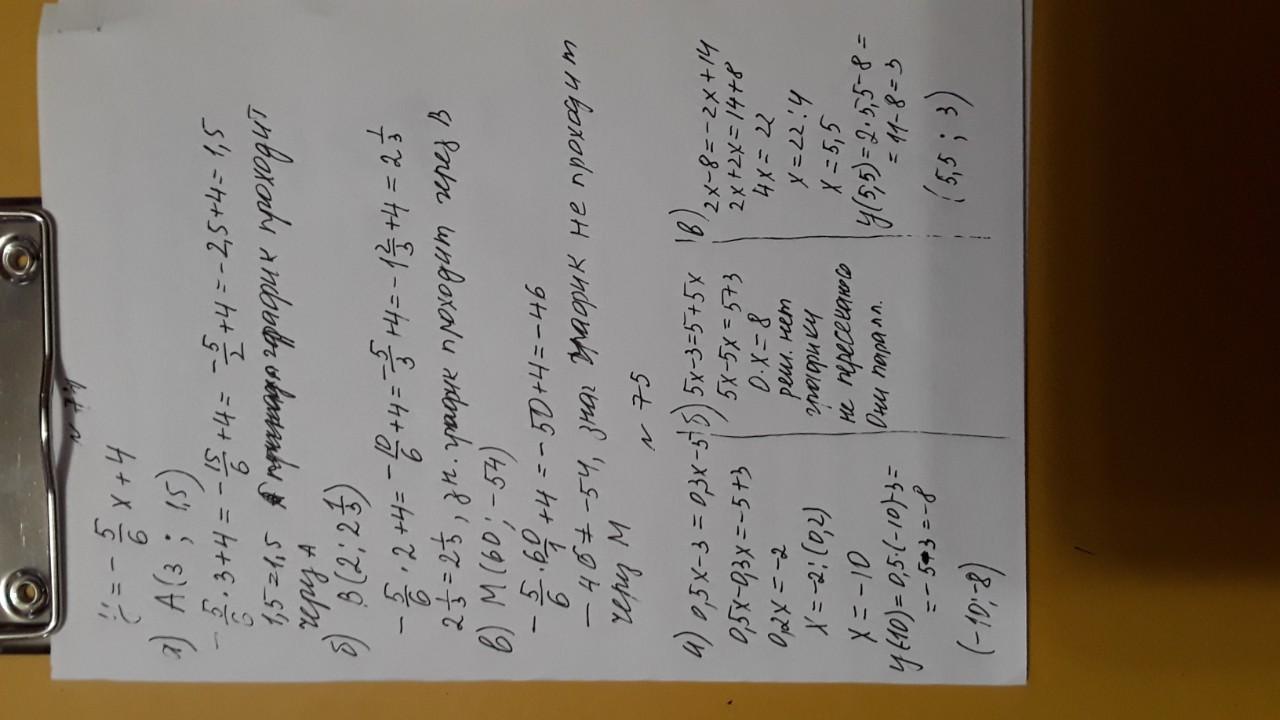 N 74
y = - 5/6 x + 4
а) А(3 ; 1,5)
- 5/6 · 3 + 4 = - 15/6 + 4 = - 5/2 + 4 = - 2,5 + 4 = 1,5
1,5 = 1,5
через А
б) В(2; 2 1/3)
- 5/6 · 2 + 4 = - 10/6 + 4 = - 5/3 + 4 = - 1 2/3 + 4 = 2 1/3
2 1/3 = 2 1/3, зн. график проходит через В
в) М(60; -54)
- 5/6 · 60/1 + 4 = - 50 + 4 = - 46
- 46 ≠ - 54, знач график не проходит
через М
N 75
а) 0,5x - 3 = 0,3x - 5
0,5x - 0,3x = - 5 + 3
0,2x = - 2
x = - 2 : (0,2)
x = - 10
y(-10) = 0,5 · (-10) - 3 =
= - 5 - 3 = - 8
(-10; -8)
б) 5x - 3 = 5 + 5x
5x - 5x = 5 + 3
0 · x = 8
реш. нет
графики
не пересекаются
Они паралл.
в)
2x - 8 = - 2x + 14
2x + 2x = 14 + 8
4x = 22
x = 22 : 4
x = 5,5
y(5,5) = 2 · 5,5 - 8 =
= 11 - 8 = 3
(5,5 ; 3)